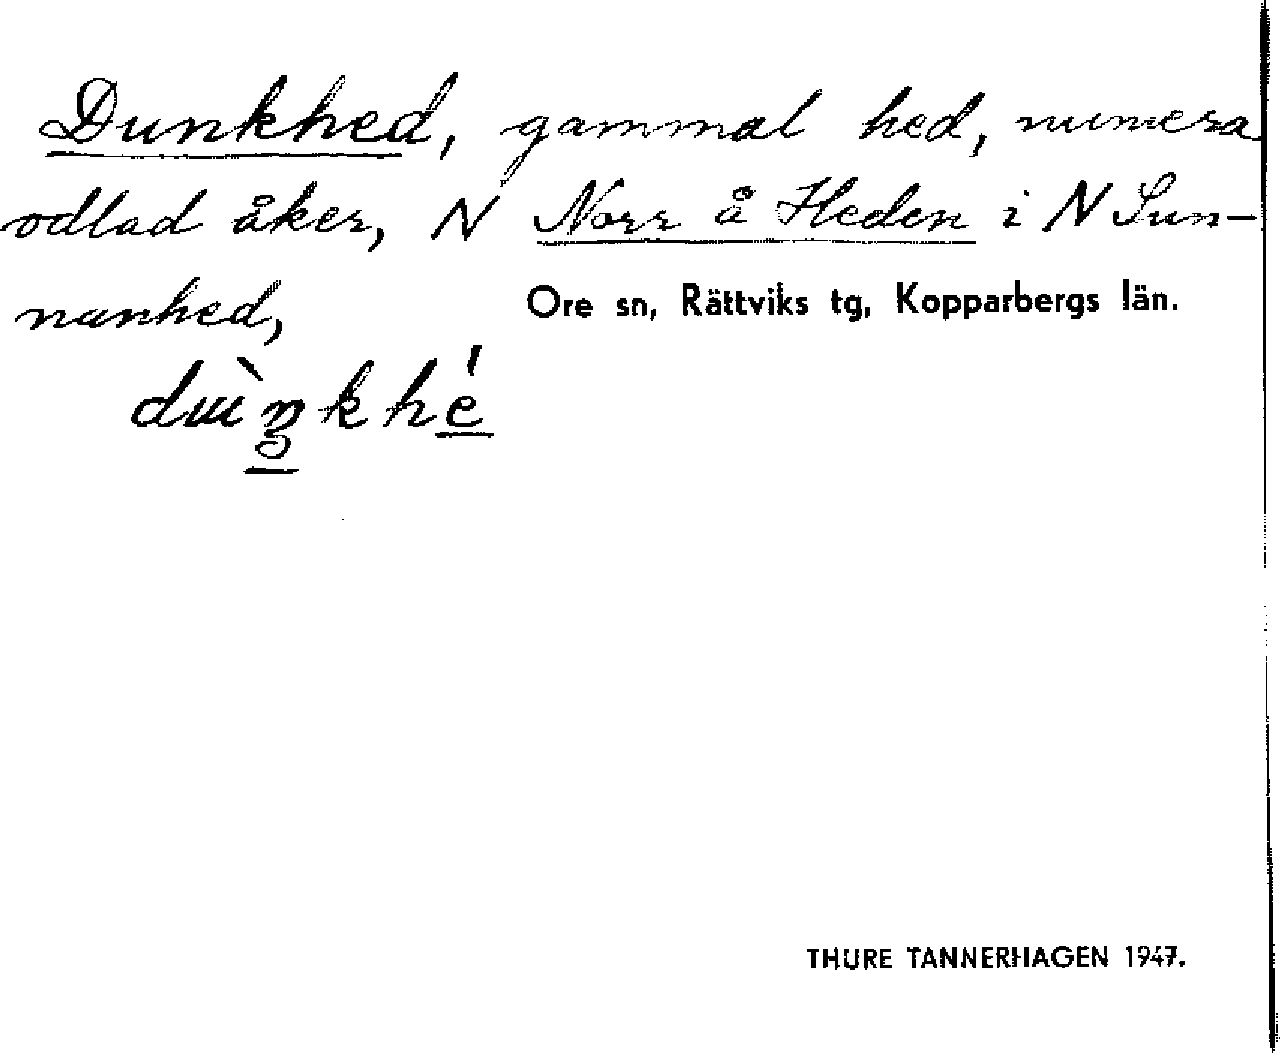 Dunkhed, gammal hed, numera
odlad åker, N Norr å Heden i N Sun-
nanhed, Ore sn, Rättviks tg, Kopparbergs län.
THURE TANNERHAGEN 1947.